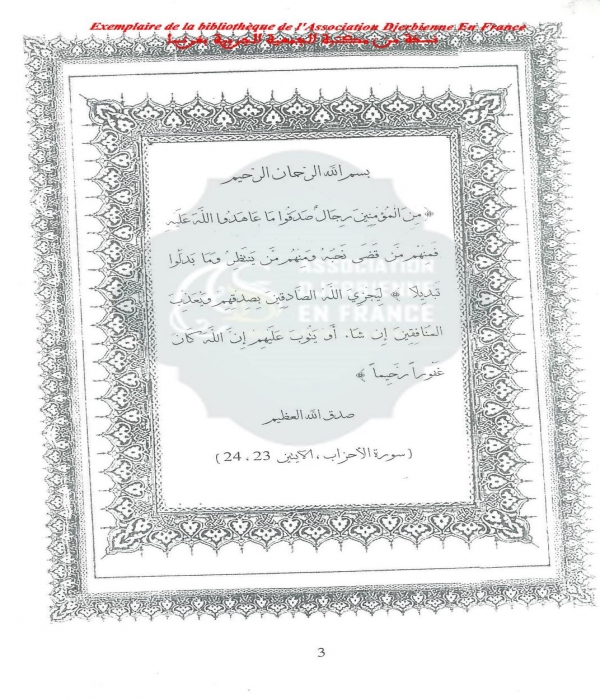 Exemplaire de la bibliothèque de l'Association Djerbienne En France
نسخة من مكتبة الجمعية الجربية بفرنسا
بسم الله الرحمان الرحيم
﴿ مِنَ المُؤمِنِينَ رِجَالٌ صَدَقُوا مَا عَاهَدُوا اللَّهَ عَلَيهِ
فَمِنْهُم مَّن قَضَى نَحْبَهُ وَمِنْهُم مَّن يَنتَظِرُ وَمَا بَدَّلُوا
تَبدِيلًا ﴾ لِيَجْزِيَ اللَّهُ الصَّادِقِينَ بِصِدْقِهِم وَيُعَذِّبَ
المُنَافِقِينَ إِن شَاءَ أَو يَتُوبَ عَلَيهِم إِنَّ اللَّهَ كَانَ
غَفُوراً رَّحِيماً ﴾
صدق الله العظيم
(سورة الأحزاب، الآيتين 23 ، 24)
ASSOCIATION
DJERBIENNE
EN FRANCE
3